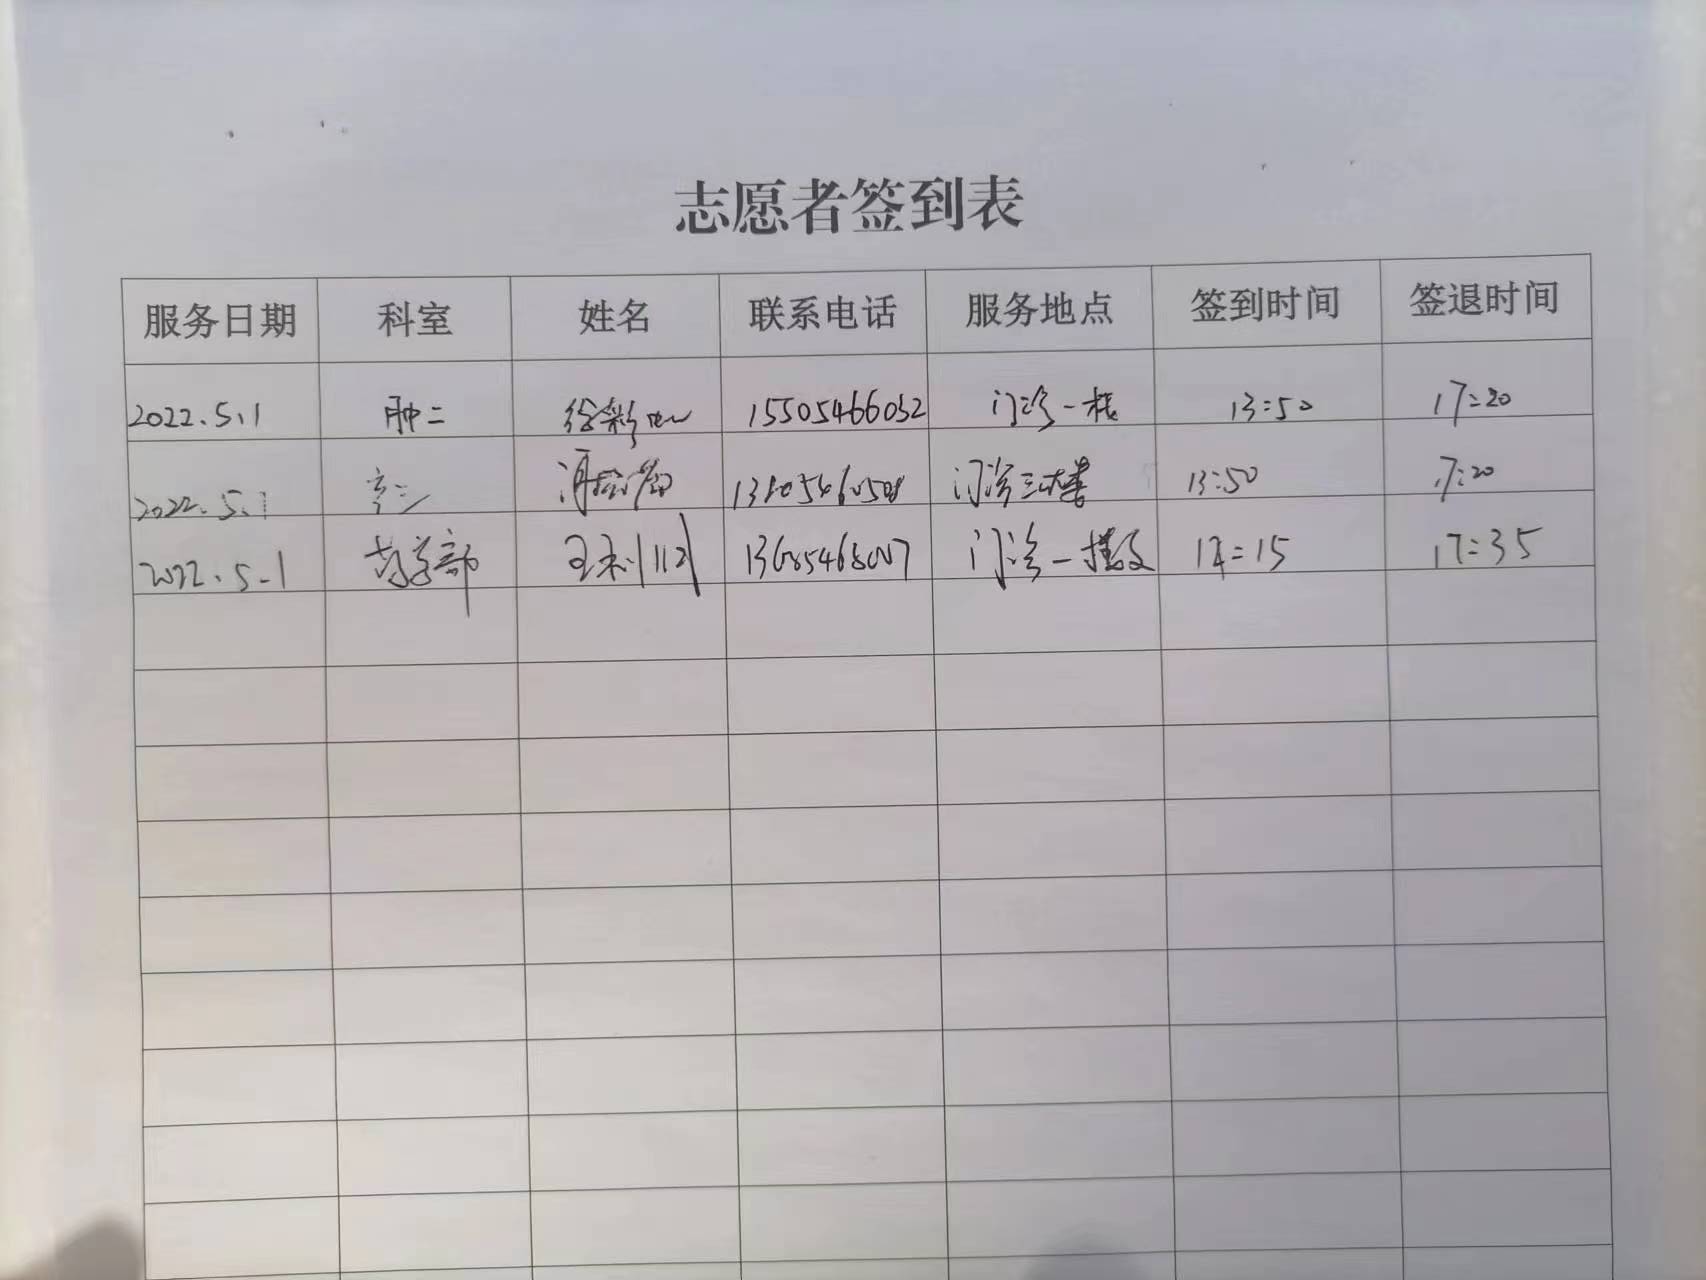 志愿者签到表
服务日期 科室 姓名 联系电话 服务地点 签到时间 签退时间
2022.5.1 肿二 徐彩 15505466032 门诊一楼 13:50 17:20
2022.5.1 门诊三楼 13:50 17:20
2022.5.1 部 王利 门诊一楼 17:35